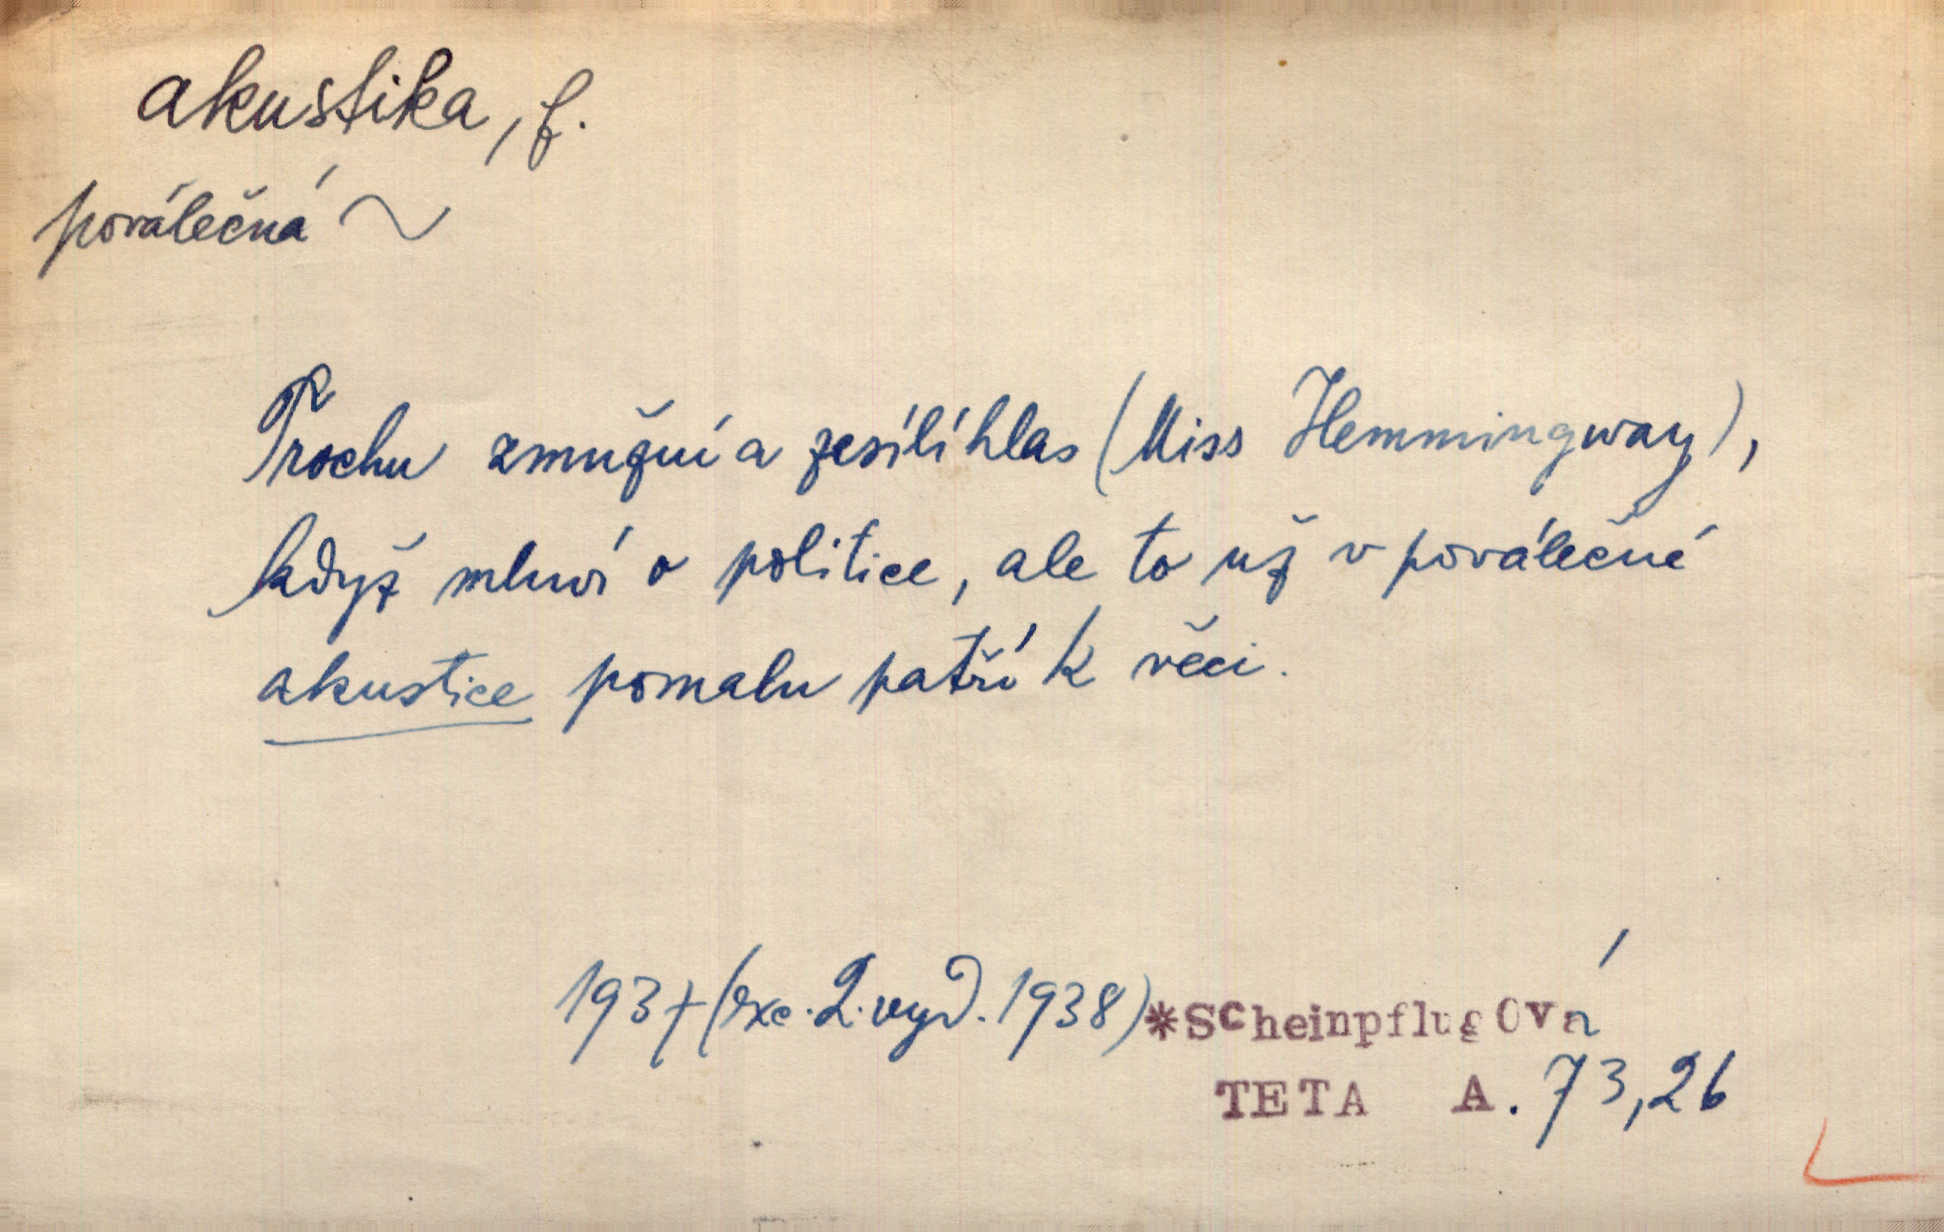 akustika, f.
poválečná ~
Trochu zmužní a zesílí hlas (Miss Hemmingway),
když mluví o politice, ale to už v poválečné
akustice pomalu patří k věci.
1937 (exc. 2. vyd. 1938) *Scheinpflugová
TETA A. 73,26